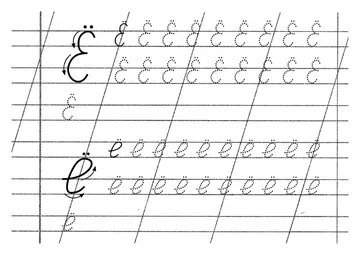 Ё
Ё Ё Ё Ё Ё Ё Ё Ё Ё
Ё Ё Ё Ё Ё Ё Ё Ё Ё
Ё
ё
ё ё ё ё ё ё ё ё ё ё
ё ё ё ё ё ё ё ё ё ё
ё